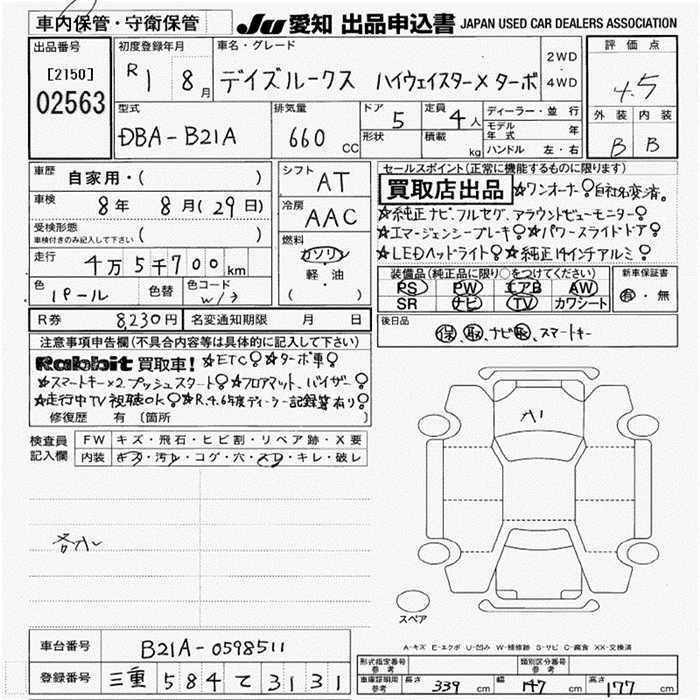 車内保管・守衛保管
JU 愛知 出品申込書 JAPAN USED CAR DEALERS ASSOCIATION
出品番号
[2150]
02563
初度登録年月
R 1 8月
車名・グレード
デイズルークス ハイウェイスターX ターボ
2WD
4WD
評価点
4.5
外装 内装
B B
型式
DBA-B21A
排気量
660 CC
ドア 5
形状
定員 4人
積載 kg
ディーラー・並行
モデル年式 年
ハンドル 左・右
車歴 自家用・( )
車検 8年 8月(29日)
受検形態
車検付きのみ記入して下さい ( )
走行 4万5千700km
色 パール
色替
色コード
シフト AT
冷房 AAC
燃料
ガソリン
軽・油
( )
R券 8,230円
名変通知期限 月 日
セールスポイント(正常に機能するものに限ります)
買取店出品 ☆ワンオーナー♀自社名変済。
☆純正ナビ、フルセグ、アラウンドビューモニター♀
☆エマージェンシーブレーキ♀☆パワースライドドア♀
☆LEDヘッドライト♀☆純正14インチアルミ♀
装備品(純正品に限り○をつけてください)
PS PW エアB AW
SR ナビ TV カワシート
新車保証書
有・無
後日品
保、取、ナビ取、スマートキー
注意事項申告欄(不具合内容等は具体的に記入して下さい)
Rabbit 買取車! ☆ETC♀☆ターボ車♀
☆スマートキー×2、プッシュスタート♀☆フロアマット、バイザー♀
☆走行中TV視聴OK♀☆R.4.6年度ディーラー記録簿有り♀
修復歴 有 〔箇所
検査員記入欄
FW キズ・飛石・ヒビ割・リペア跡・X要
内装 キズ・汚レ・コゲ・穴・スレ・キレ・破レ
A1
スペア
A-キズ E-エクボ U-凹み W-補修跡 S-サビ C-腐食 XX-交換済
車台番号 B21A-0598511
登録番号 三重 584 て 3131
形式指定番号 参考
類別区分番号 参考
車庫証明用 参考
長さ 339 cm 幅 147 cm 高さ 177 cm